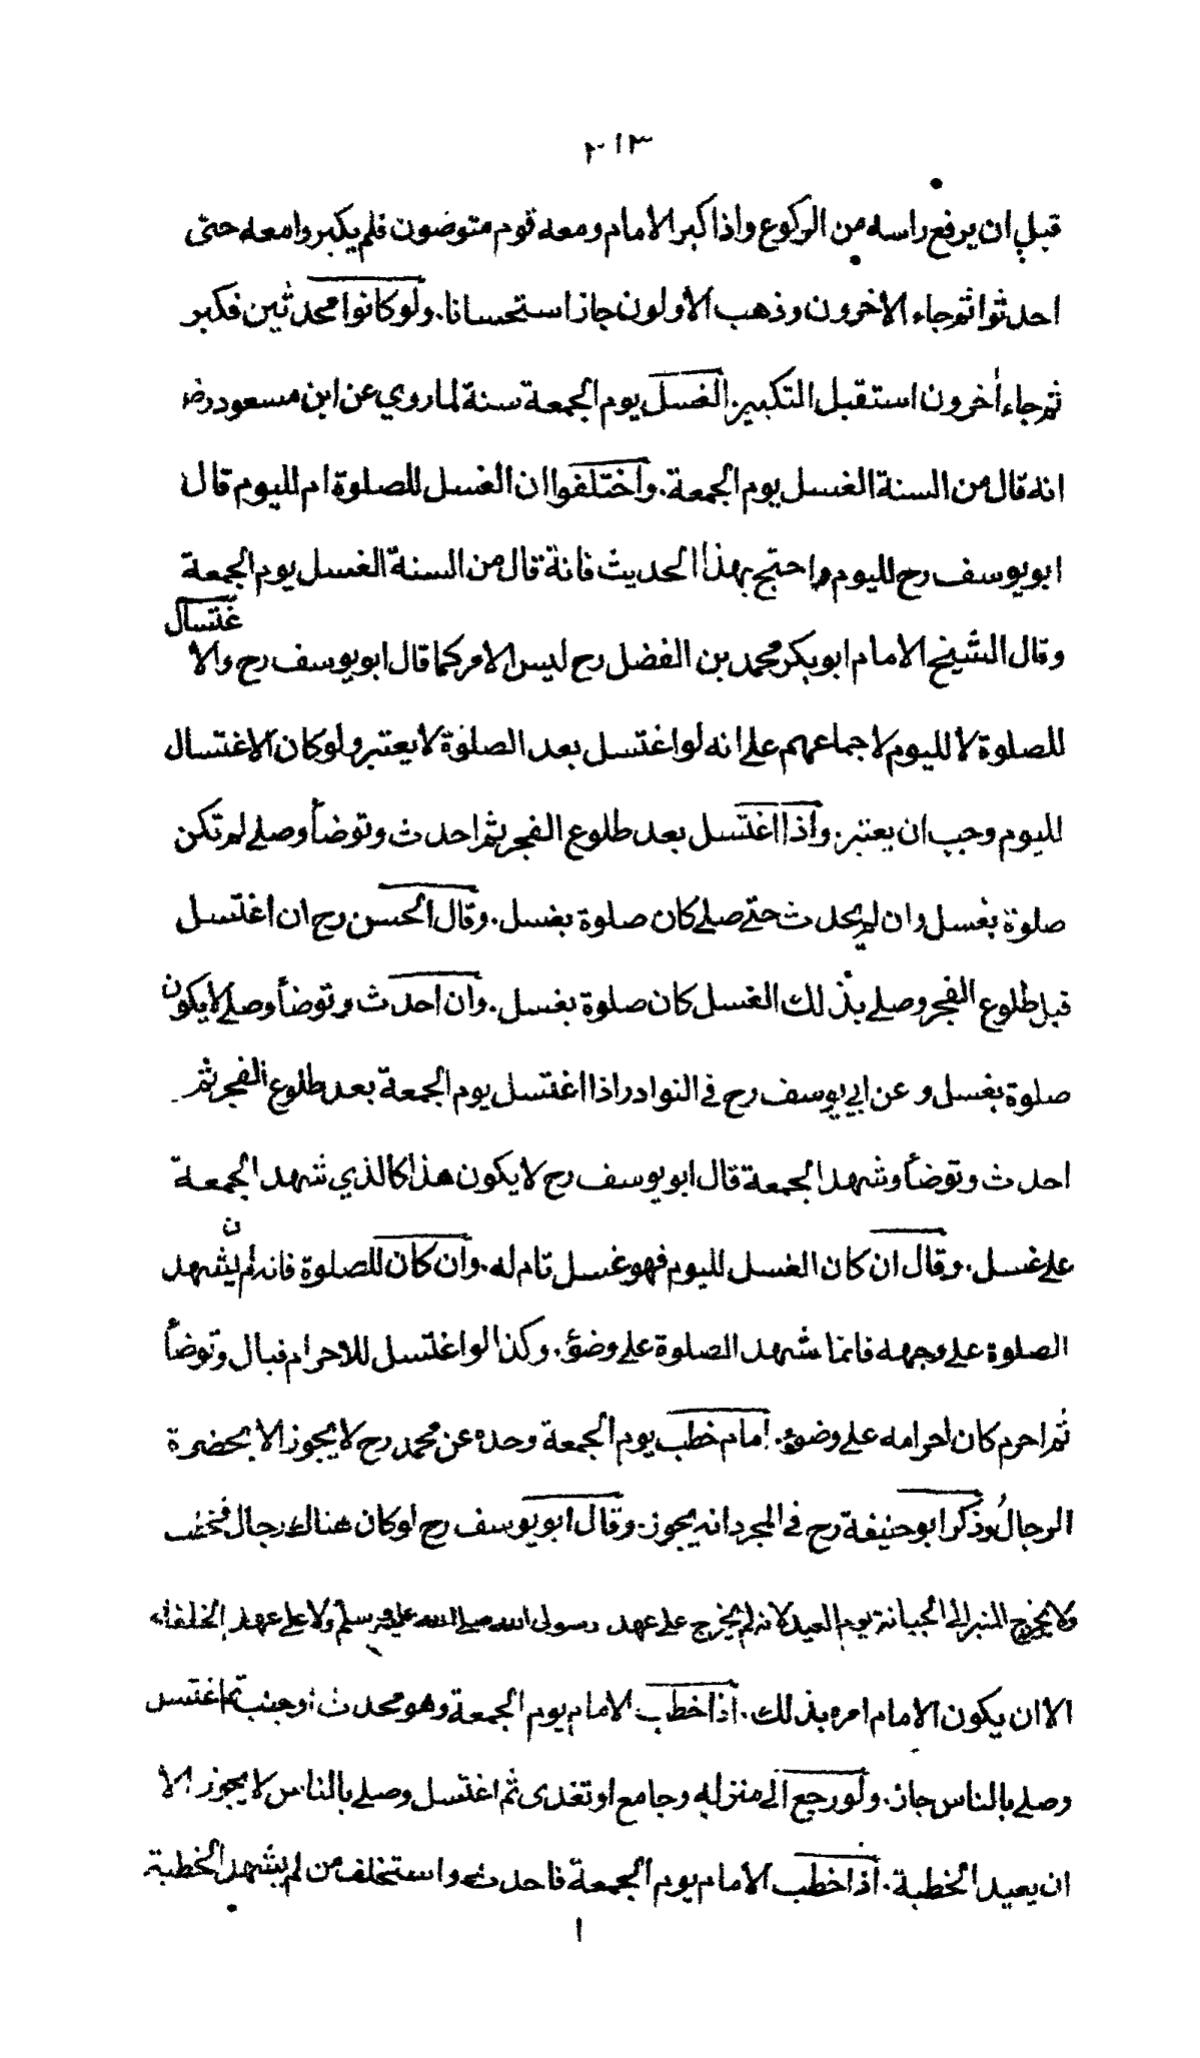 ٢١٣
قبل ان يرفع راسه من الركوع واذا كبر الامام ومعه قوم متوضون فلم يكبروا معه حتى
احدثوا ثم جاء الاخرون وذهب الاولون جاز استحسانا. ولو كانوا محدثين فكبر
ثم جاء أخرون استقبل التكبير. الغسل يوم الجمعة سنة لما روي عن ابن مسعود رضـ
انه قال من السنة الغسل يوم الجمعة. واختلفوا ان الغسل للصلوة ام لليوم قال
ابو يوسف رح لليوم واحتج بهذا الحديث فانه قال من السنة الغسل يوم الجمعة
وقال الشيخ الامام ابو بكر محمد بن الفضل رح ليس الامر كما قال ابو يوسف رح والاغتسال
للصلوة لا لليوم لاجماعهم على انه لو اغتسل بعد الصلوة لا يعتبر ولو كان الاغتسال
لليوم وجب ان يعتبر. واذا اغتسل بعد طلوع الفجر ثم احدث وتوضأ وصلى لم تكن
صلوة بغسل وان لم يحدث حتى صلى كان صلوة بغسل. وقال الحسن رح ان اغتسل
قبل طلوع الفجر وصلى بذلك الغسل كان صلوة بغسل. وان احدث وتوضأ وصلى لا يكون
صلوة بغسل وعن ابي يوسف رح في النوادر اذا اغتسل يوم الجمعة بعد طلوع الفجر ثم
احدث وتوضأ وشهد الجمعة قال ابو يوسف رح لا يكون هذا كالذي شهد الجمعة
على غسل. وقال ان كان الغسل لليوم فهو غسل تام له. وان كان للصلوة فانه لم يشهد
الصلوة على وجهه فانما شهد الصلوة على وضوء. وكذا لو اغتسل للاحرام فبال وتوضأ
ثم احرم كان احرامه على وضوء. امام خطب يوم الجمعة وحده عن محمد رح لا يجوز الا بحضرة
الرجال وذكر ابو حنيفة رح في المجرد انه يجوز. وقال ابو يوسف رح لو كان هناك رجال
ولا يخرج المنبر الى الجبانة يوم العيد لانه لم يخرج على عهد رسول الله صلى الله عليه وسلم ولا على عهد الخلفاء
الا ان يكون الامام امره بذلك. اذا خطب الامام يوم الجمعة وهو محدث او جنب ثم اغتسل
وصلى بالناس جاز. ولو رجع الى منزله وجامع او تغدى ثم اغتسل وصلى بالناس لا يجوز الا
ان يعيد الخطبة. اذا خطب الامام يوم الجمعة فاحدث واستخلف من لم يشهد الخطبة
ا